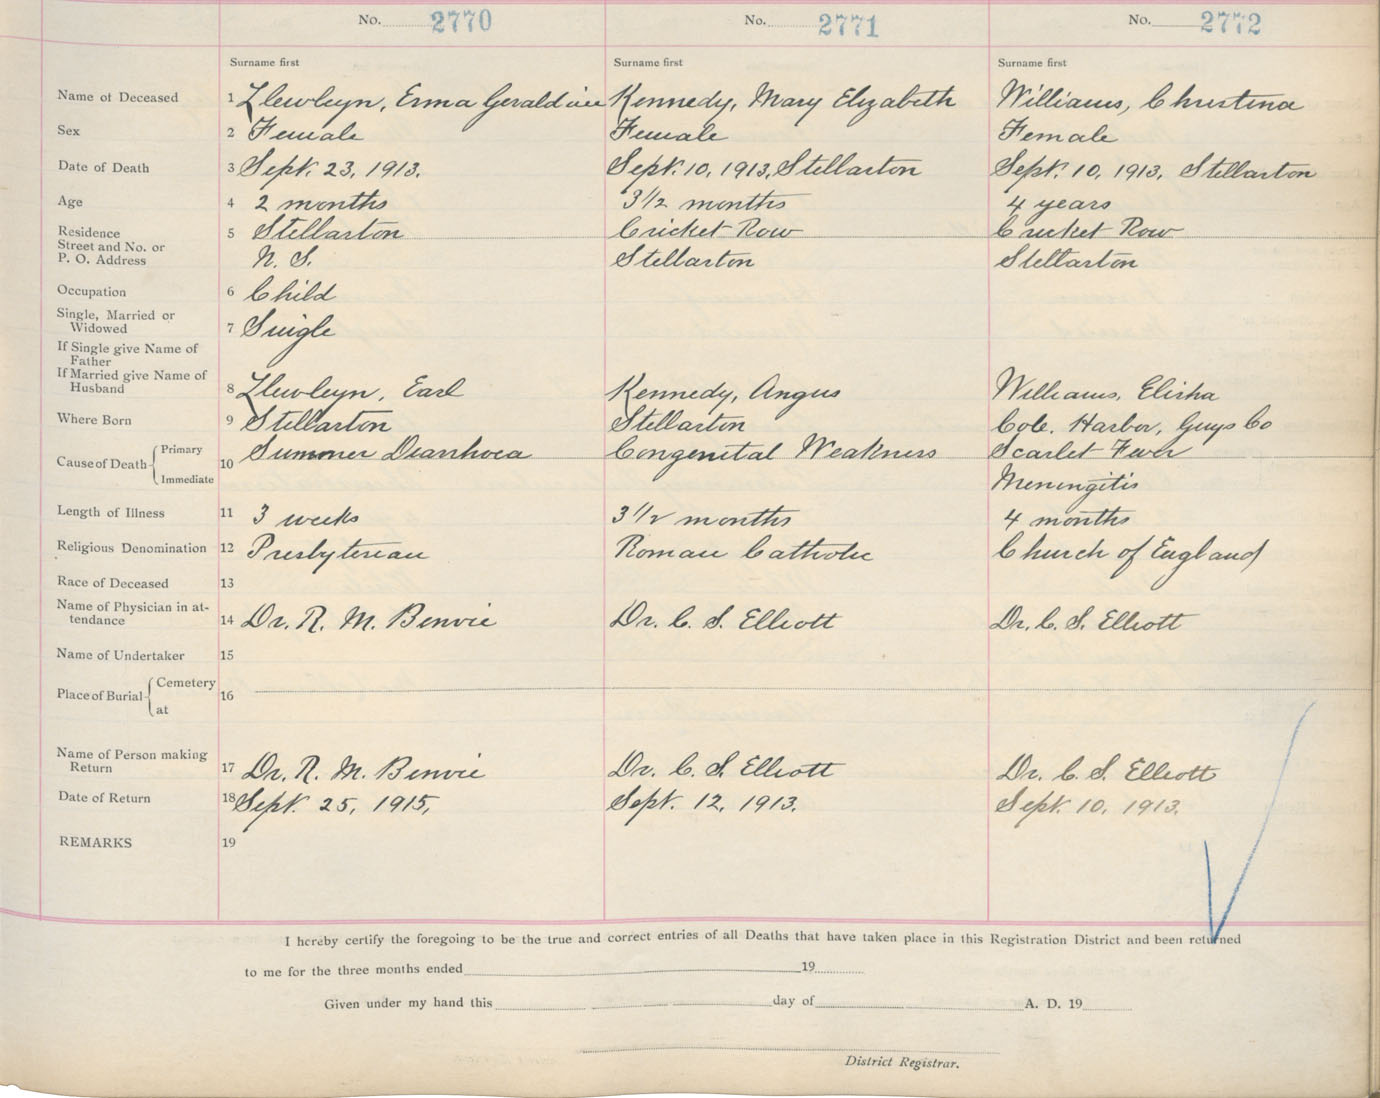 No. 2770 No. 2771 No. 2772
Surname first Surname first Surname first
Name of Deceased 1 Llewleyn, Erma Geraldine Kennedy, Mary Elizabeth Williams, Christena
Sex 2 Female Female Female
Date of Death 3 Sept. 23, 1913. Sept. 10, 1913, Stellarton Sept. 10, 1913, Stellarton
Age 4 2 months 3 1/2 months 4 years
Residence 5 Stellarton Cricket Row Cricket Row
Street and No. or
P. O. Address N. S. Stellarton Stellarton
Occupation 6 Child
Single, Married or
Widowed 7 Single
If Single give Name of
Father
If Married give Name of
Husband 8 Llewleyn, Earl Kennedy, Angus Williams, Elisha
Where Born 9 Stellarton Stellarton Cole. Harbor, Guys Co
Cause of Death Primary 10 Summer Diarrhoea Congenital Weakness Scarlet Fever
Immediate Meningitis
Length of Illness 11 3 weeks 3 1/2 months 4 months
Religious Denomination 12 Presbyterian Roman Catholic Church of England
Race of Deceased 13
Name of Physician in at-
tendance 14 Dr. R. M. Benvie Dr. C. S. Elliott Dr. C. S. Elliott
Name of Undertaker 15
Place of Burial Cemetery 16
at
Name of Person making
Return 17 Dr. R. M. Benvie Dr. C. S. Elliott Dr. C. S. Elliott
Date of Return 18 Sept. 25, 1915, Sept. 12, 1913. Sept. 10, 1913.
REMARKS 19
I hereby certify the foregoing to be the true and correct entries of all Deaths that have taken place in this Registration District and been returned
to me for the three months ended 19
Given under my hand this day of A. D. 19
District Registrar.